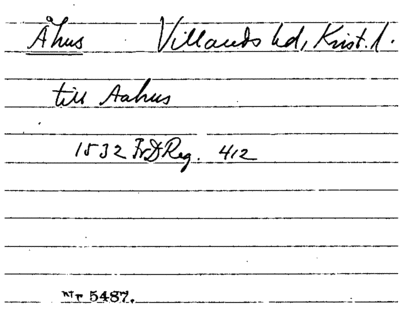 Åhus Villands hd, Krist. l.
till Aahus
1532 FrDReg. 412
Nr 5487.